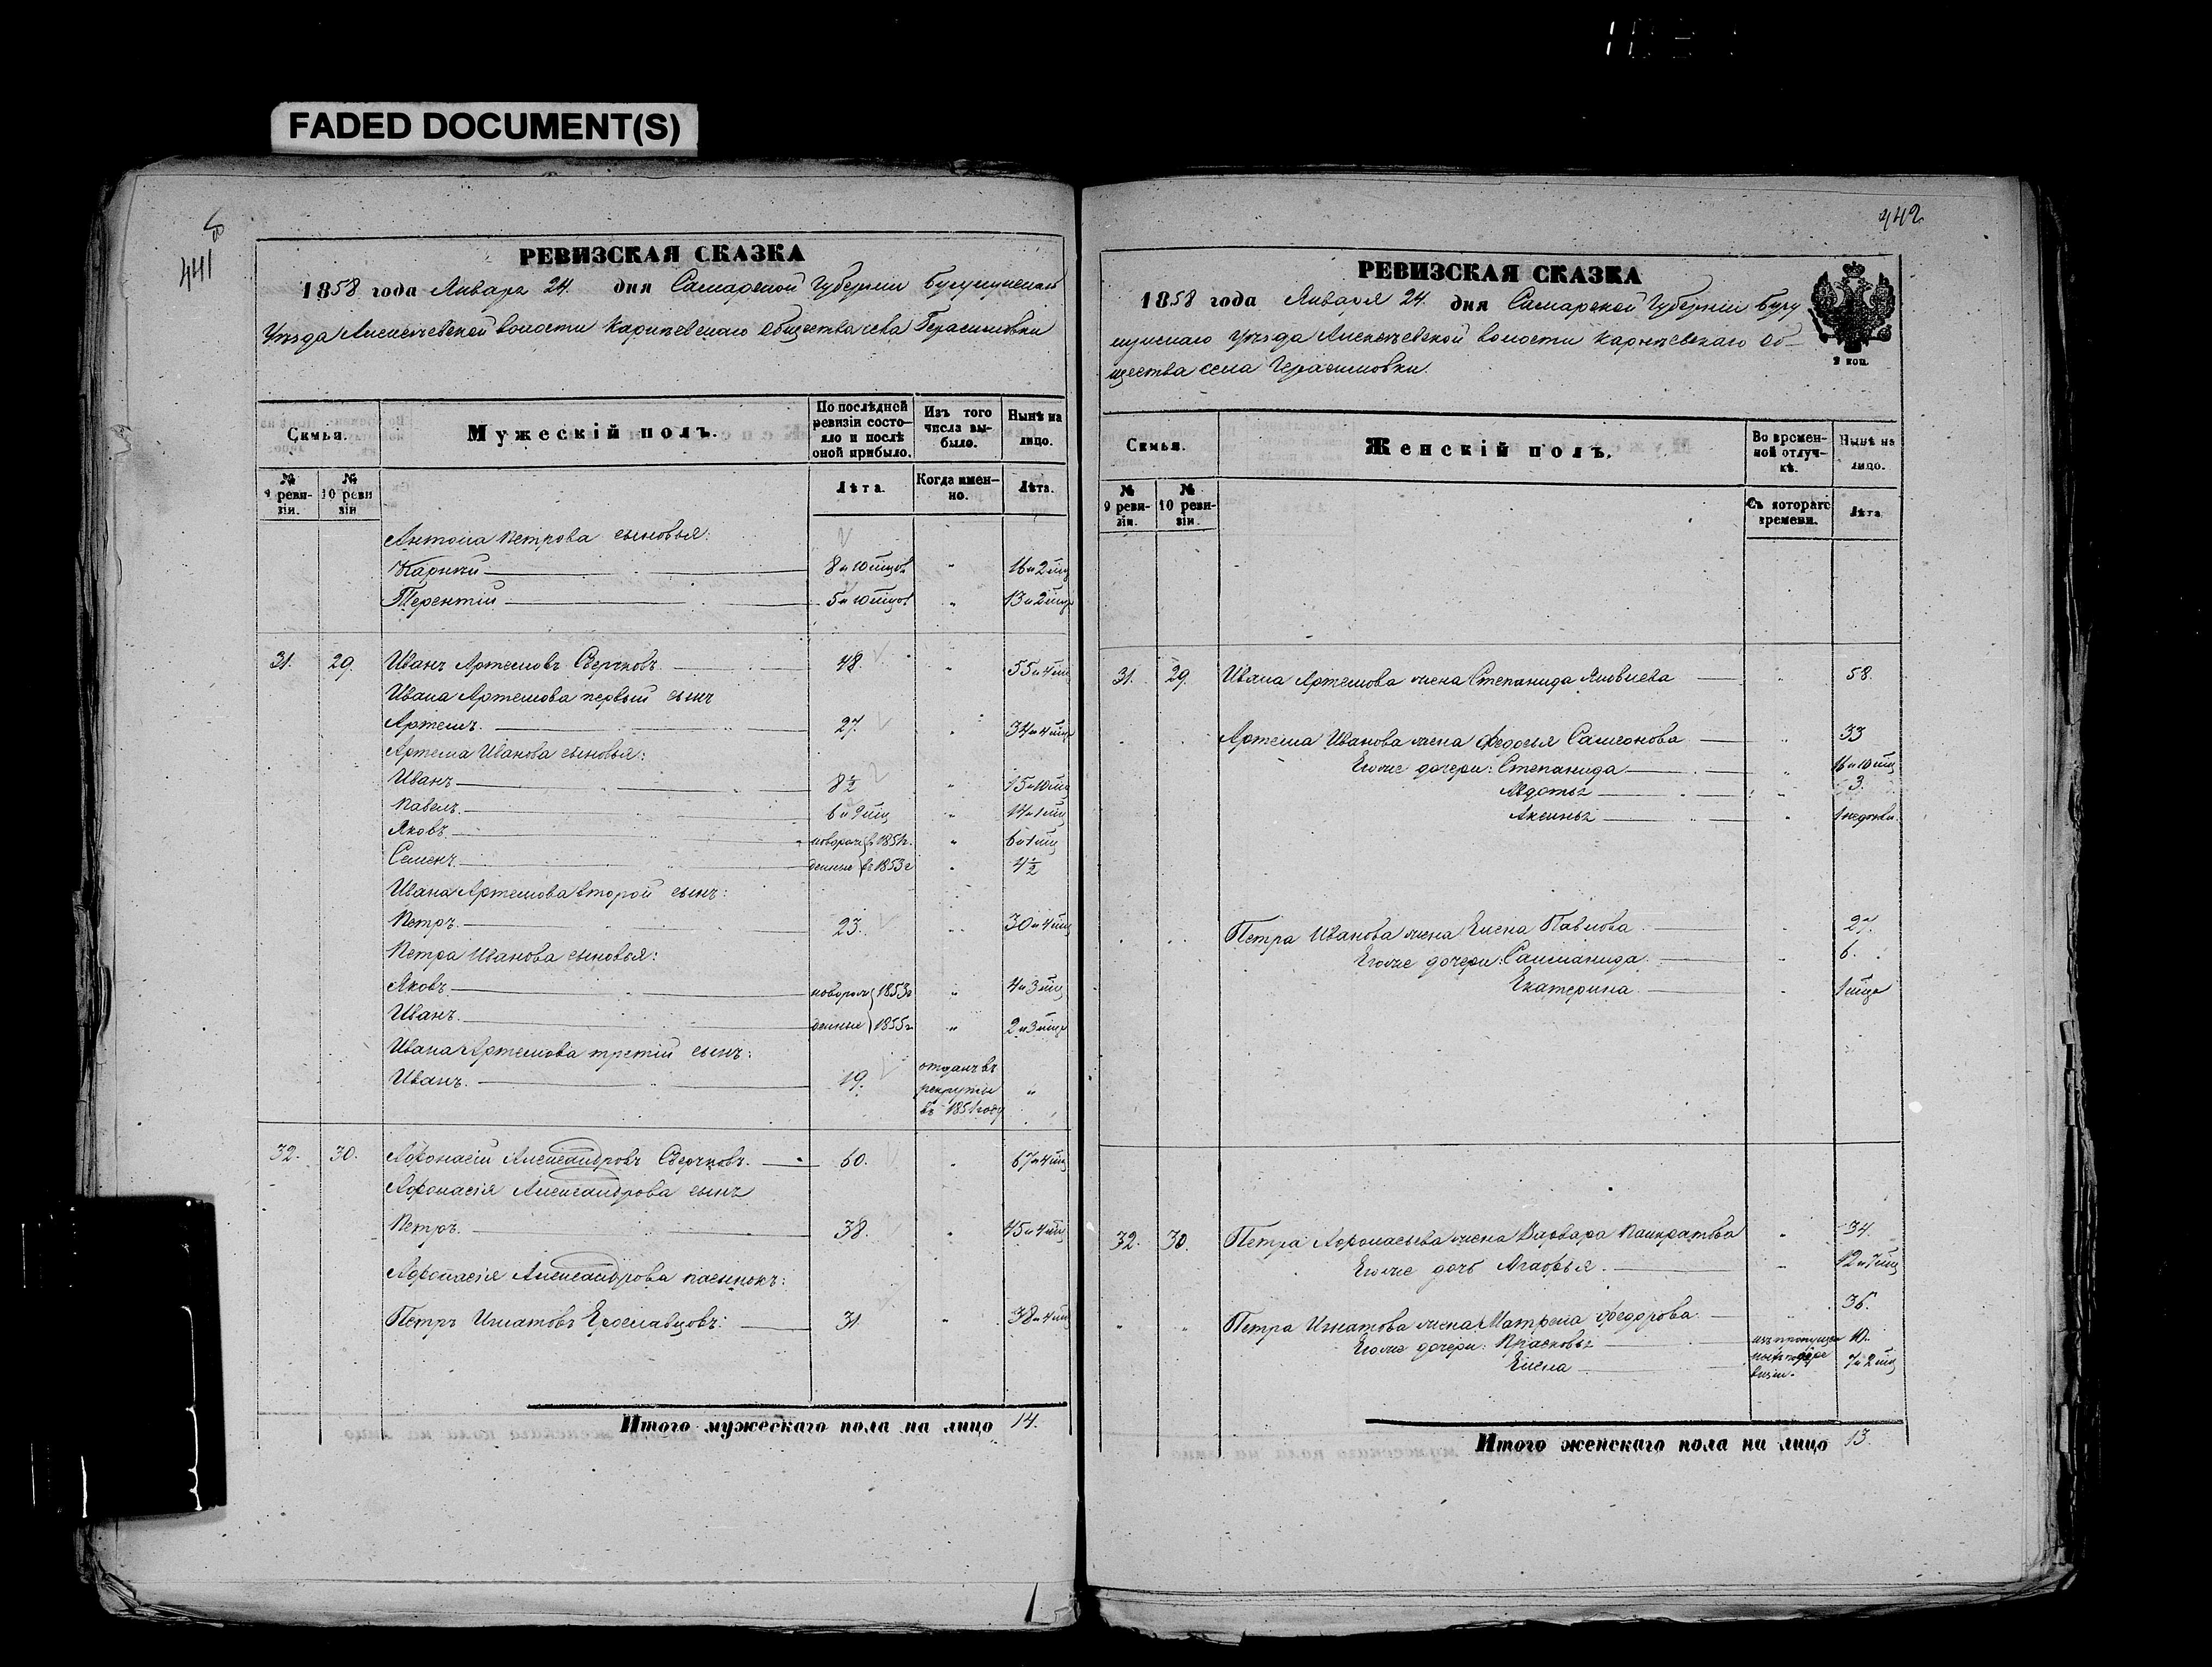 FADED DOCUMENT(S)
441
РЕВИЗСКАЯ СКАЗКА
1858 года Января 24. дня Самарской Губерніи Бугурусланскаго
Уѣзда волости общества села Герасимовки
Семья. Мужескій полъ. По послѣдней ревизіи состояло и послѣ оной прибыло. Изъ того числа выбыло. Нынѣ на лицо.
№ 9 ревизіи. № 10 ревизіи Лѣта. Когда именно. Лѣта.
Антона Петрова сыновья:
Карпѣй 8 и 10 мѣцов " 16 и 2 мѣц
Терентій 5 и 10 мѣцов " 13 и 2 мѣц
31. 29. Иванъ Артемовъ Сверчковъ 48. " 55 и 4 мѣц
Ивана Артемова первый сынъ
Артемъ. 27. " 34 и 4 мѣц
Артема Иванова сыновья:
Иванъ 8½ " 15 и 10 мѣц
Павелъ 6 и 9 мѣц " 14 и 1 мѣц
Яковъ новорож въ 1851г. " 6 и 1 мѣц
Семенъ денные въ 1853г " 4½
Ивана Артемова второй сынъ:
Петръ 23. " 30 и 4 мѣц
Петра Иванова сыновья:
Яковъ новорож 1853г " 4 и 3 мѣц
Иванъ денные 1855г " 2 и 3 мѣц
Ивана Артемова третій сынъ:
Иванъ. 19. отданъ въ рекруты въ 1851 году "
32. 30. Афонасій Александровъ Сверчковъ. 60. " 67 и 4 мѣц
Афонасія Александрова сынъ
Петръ. 38. " 45 и 4 мѣц
Афонасія Александрова пасынокъ:
Петръ Игнатовъ Ерославцовъ: 31 " 38 и 4 мѣц
Итого мужескаго пола на лицо 14.
442
РЕВИЗСКАЯ СКАЗКА
1858 года Января 24. дня Самарской Губерніи Бугу
Уѣзда волости Об-
щества села Герасимовки.
2 коп.
Семья. Женскій полъ. Во временной отлучкѣ. Нынѣ на лицо.
№ 9 ревизіи. № 10 ревизіи. Съ котораго времени. Лѣта
31. 29. Ивана Артемова жена Степанида Яковлева " 58.
Артема Иванова жена Федосья Самсонова " 33
Его же дочери: Степанида " 16 и 10 мѣц
Авдотья " 3.
Аксинья " 1 недѣли.
Петра Иванова жена Елена Павлова " 27.
Его же дочери: " 6.
Екатерина " 1 мѣца
32. 30. Петра Афонасьева жена Варвара Панкратова " 34.
Его же дочь Агафья. " 12 и 7 мѣц
Петра Игнатова жена Матрена Федорова " 36.
Его же дочери: Прасковья 10.
Елена 7 и 2 мѣц
Итого женскаго пола на лицо 13.